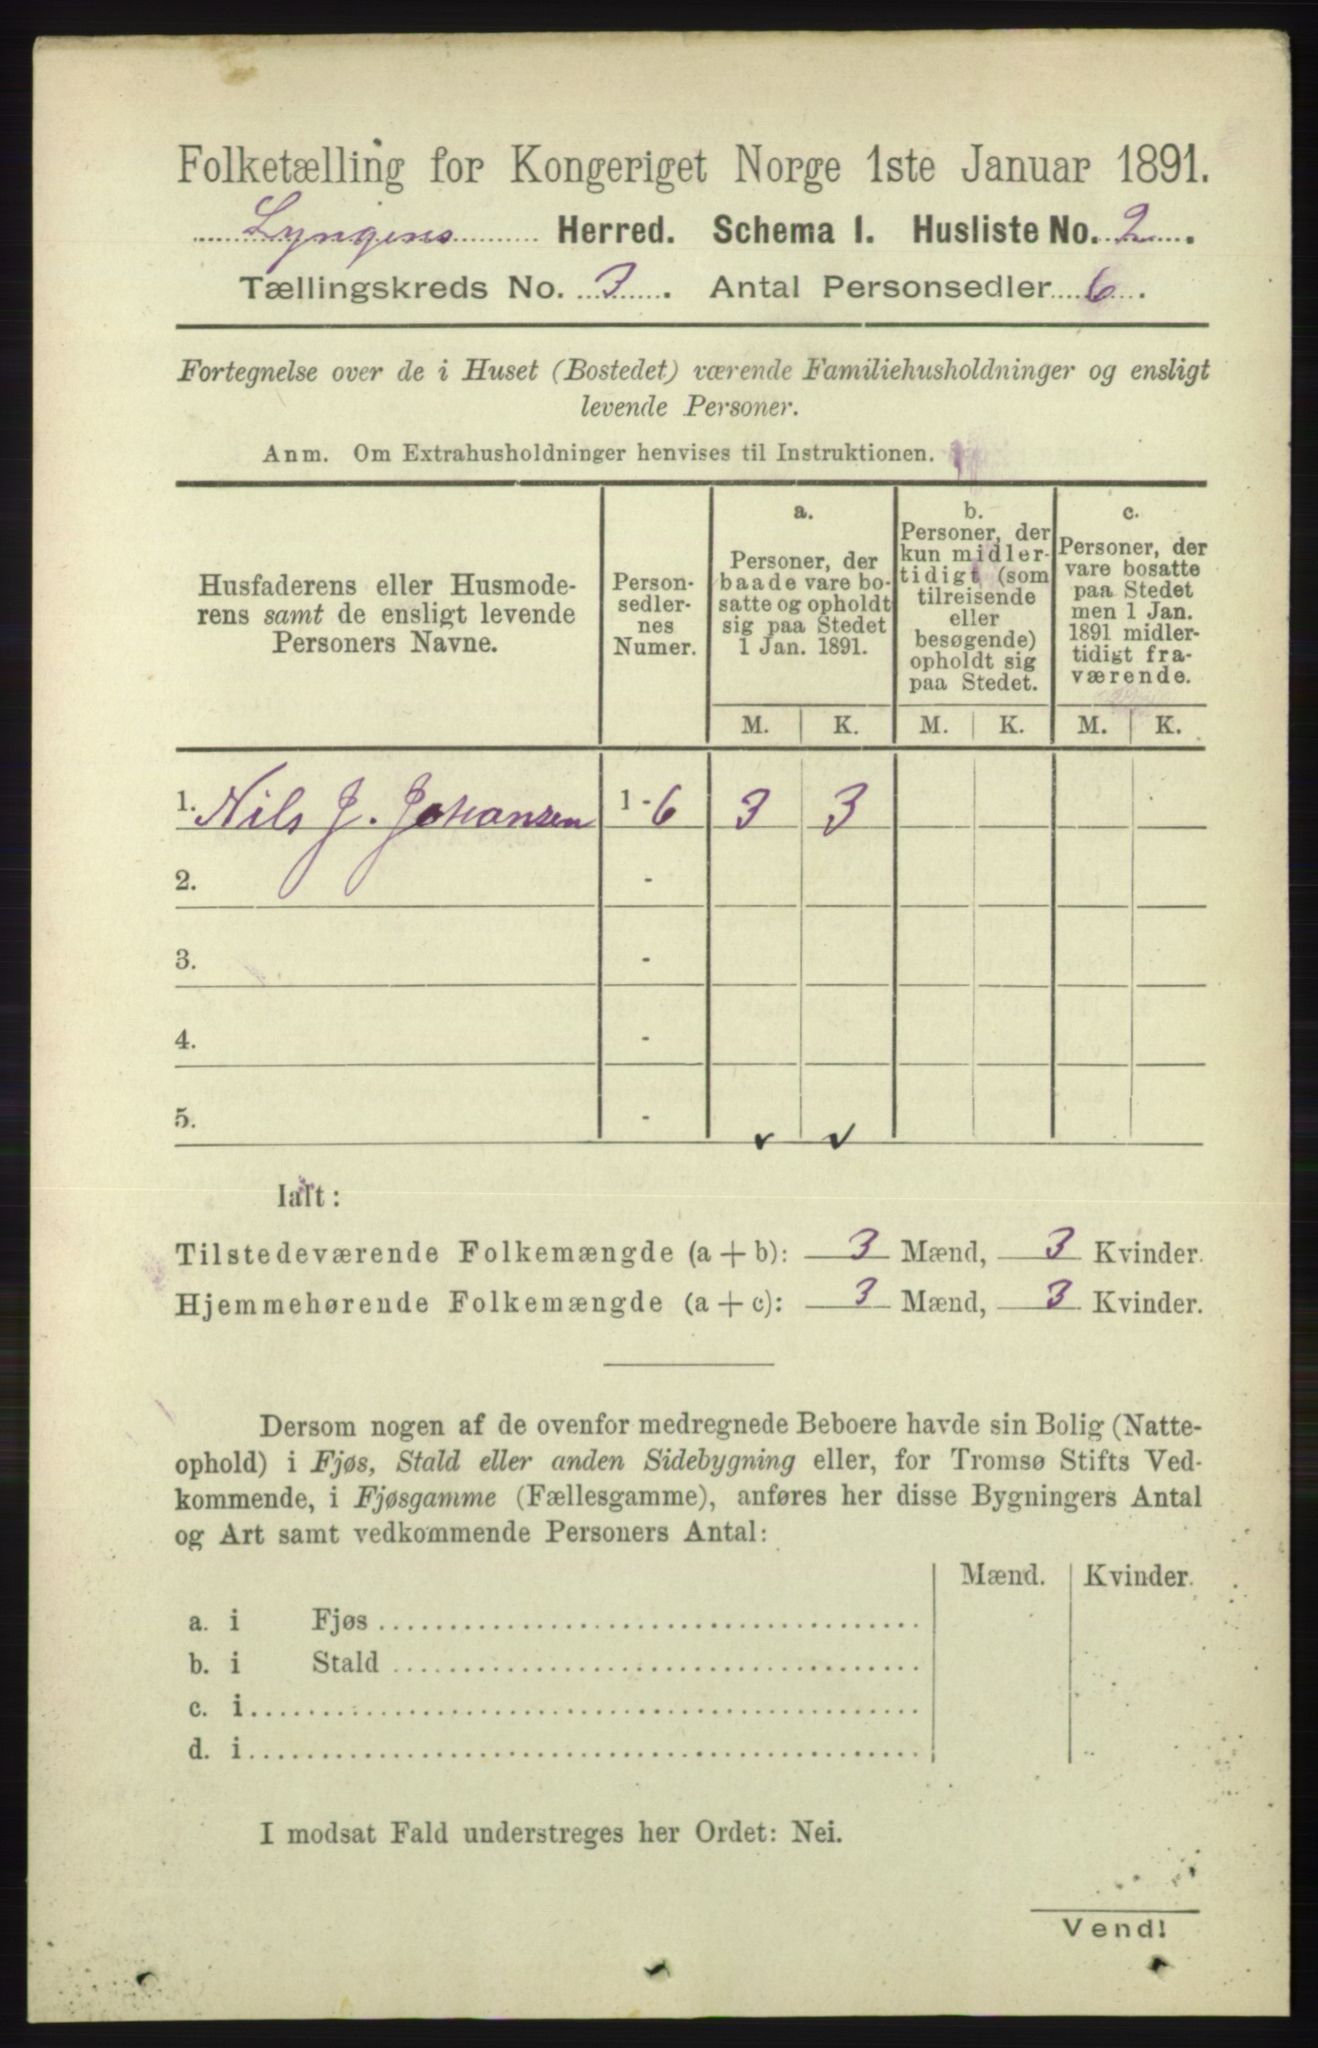 Folketælling for Kongeriget Norge 1ste Januar 1891.
Lyngens Herred. Schema I. Husliste No. 2.
Tællingskreds No. 3. Antal Personsedler 6.
Fortegnelse over de i Huset (Bostedet) værende Familiehusholdninger og ensligt
levende Personer.
Anm. Om Extrahusholdninger henvises til Instruktionen.
Husfaderens eller Husmode-
rens samt de ensligt levende
Personers Navne.
Person-
sedler-
nes
Numer.
a.
Personer, der
baade vare bo-
satte og opholdt
sig paa Stedet
1 Jan. 1891.
b.
Personer, der
kun midler-
tidigt (som
tilreisende
eller
besøgende)
opholdt sig
paa Stedet.
c.
Personer, der
vare bosatte
paa Stedet
men 1 Jan.
1891 midler-
tidigt fra-
værende.
M. K. M. K. M. K.
1. Nils J. Johansen 1 - 6 3 3
2. -
3. -
4. -
5. -
Ialt:
Tilstedeværende Folkemængde (a + b): 3 Mænd, 3 Kvinder.
Hjemmehørende Folkemængde (a + c): 3 Mænd, 3 Kvinder.
Dersom nogen af de ovenfor medregnede Beboere havde sin Bolig (Natte-
ophold) i Fjøs, Stald eller anden Sidebygning eller, for Tromsø Stifts Ved-
kommende, i Fjøsgamme (Fællesgamme), anføres her disse Bygningers Antal
og Art samt vedkommende Personers Antal:
Mænd. Kvinder.
a. i Fjøs
b. i Stald
c. i
d. i
I modsat Fald understreges her Ordet: Nei.
Vend!